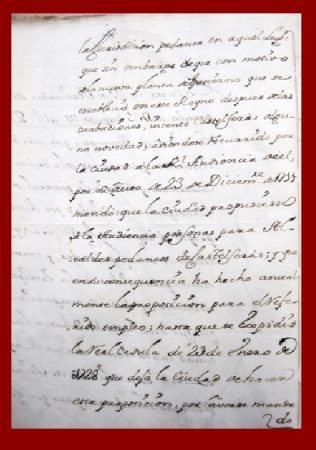 la Jurisdicion pedanea en aquel
que sin embargo de que con motivo
nueva planta de govierno que se
establecio en ese Reyno despues de las
turbaciones, intento
novedad; aviendose recurrido por
la Ciudad a la Rl Audiencia
por Auto de 23 de Diciemre de 1717
mando que la Ciudad propusiesse
a la Audiencia personas para Al
caldes pedaneos de y que
en su consequencia ha hecho anual
mente la proposicion para el Refe
rido empleo; hasta que se expidio
la Real Cedula de 23 de Enero de
1728 que dejo la Ciudad de hacer
esta proposicion, por averse manda
do